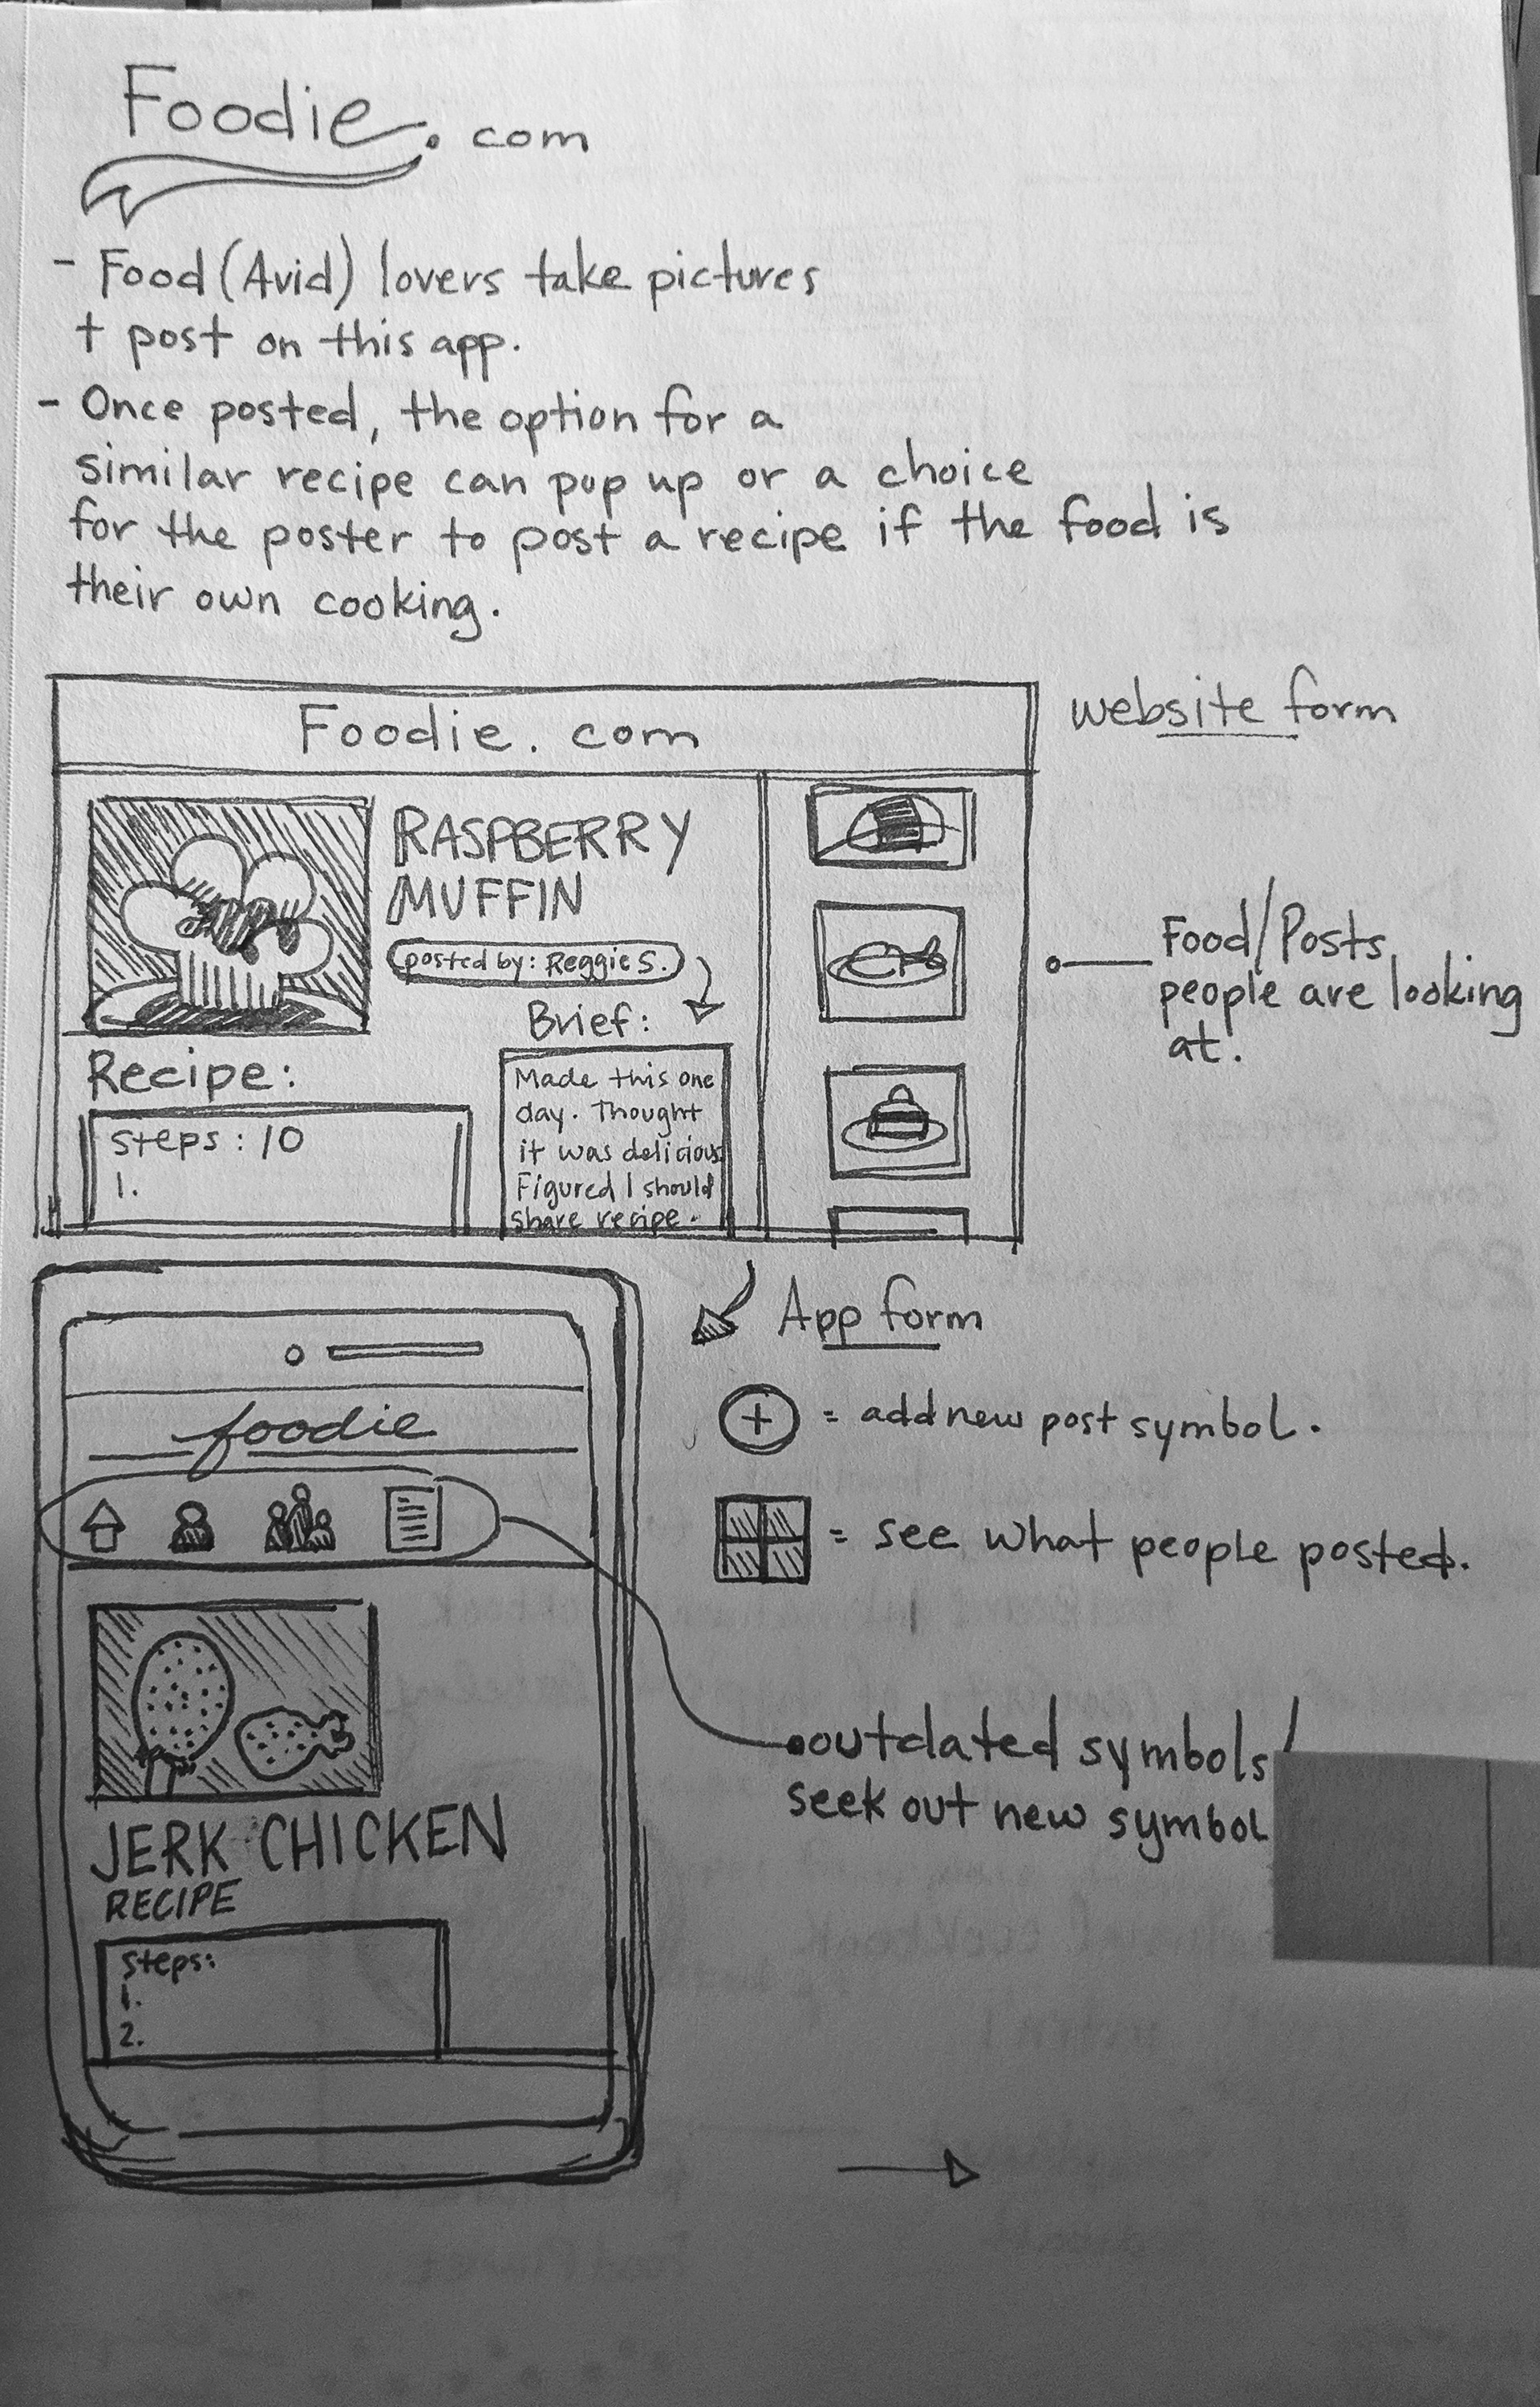 Foodie.com
- Food (Avid) lovers take pictures
+ post on this app.
- Once posted, the option for a
similar recipe can pop up or a choice
for the poster to post a recipe if the food is
their own cooking.
website form
Foodie.com
RASPBERRY
MUFFIN
posted by: Reggie S.
Brief:
Made this one
day. Thought
it was delicious.
Figured I should
share recipe.
Recipe:
steps: 10
1.
Food/Posts
people are looking
at.
App form
+ = add new post symbol.
= see what people posted.
foodie
outdated symbols!
seek out new symbol
JERK CHICKEN
RECIPE
steps:
1.
2.